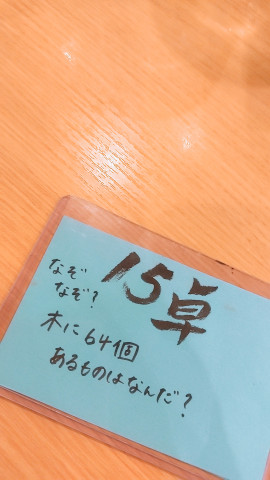 15卓
なぞ
なぞ?
木に64個
あるものはなんだ?